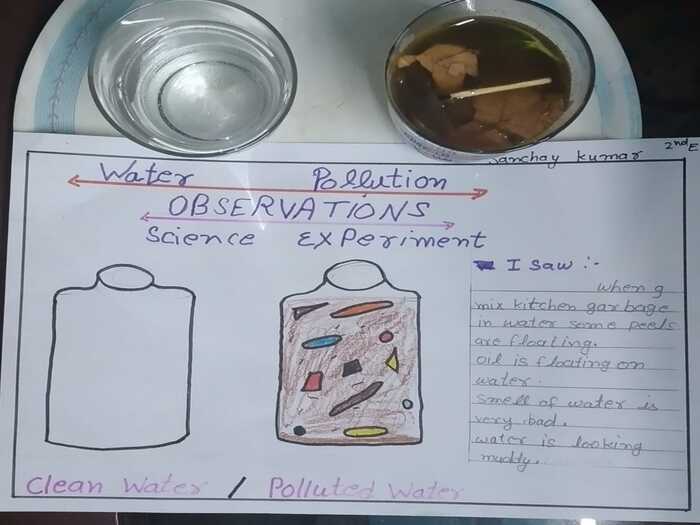 Sanchay kumar 2nd E
Water Pollution
OBSERVATIONS
Science EXPeriment
I Saw :-
when g
mix kitchen garbage
in water some peels
are floating.
oil is floating on
water.
Smell of water is
very bad.
water is looking
muddy.
Clean Water / Polluted Water